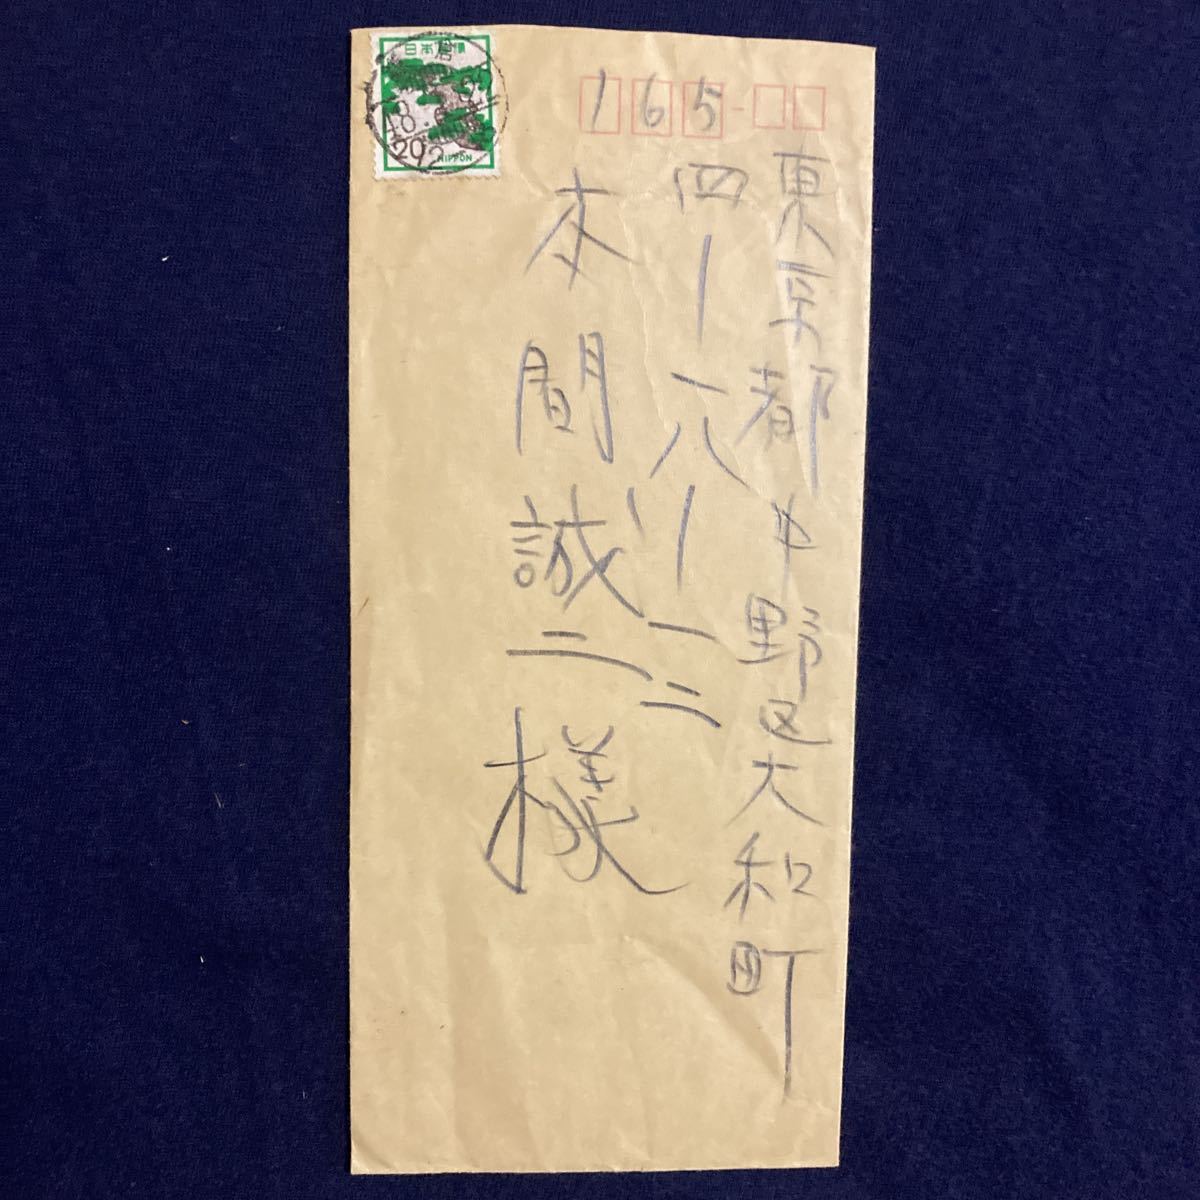 日本郵便
NIPPON
292
165
東京都中野区大和町
四ー一八ー一二
本間誠二様